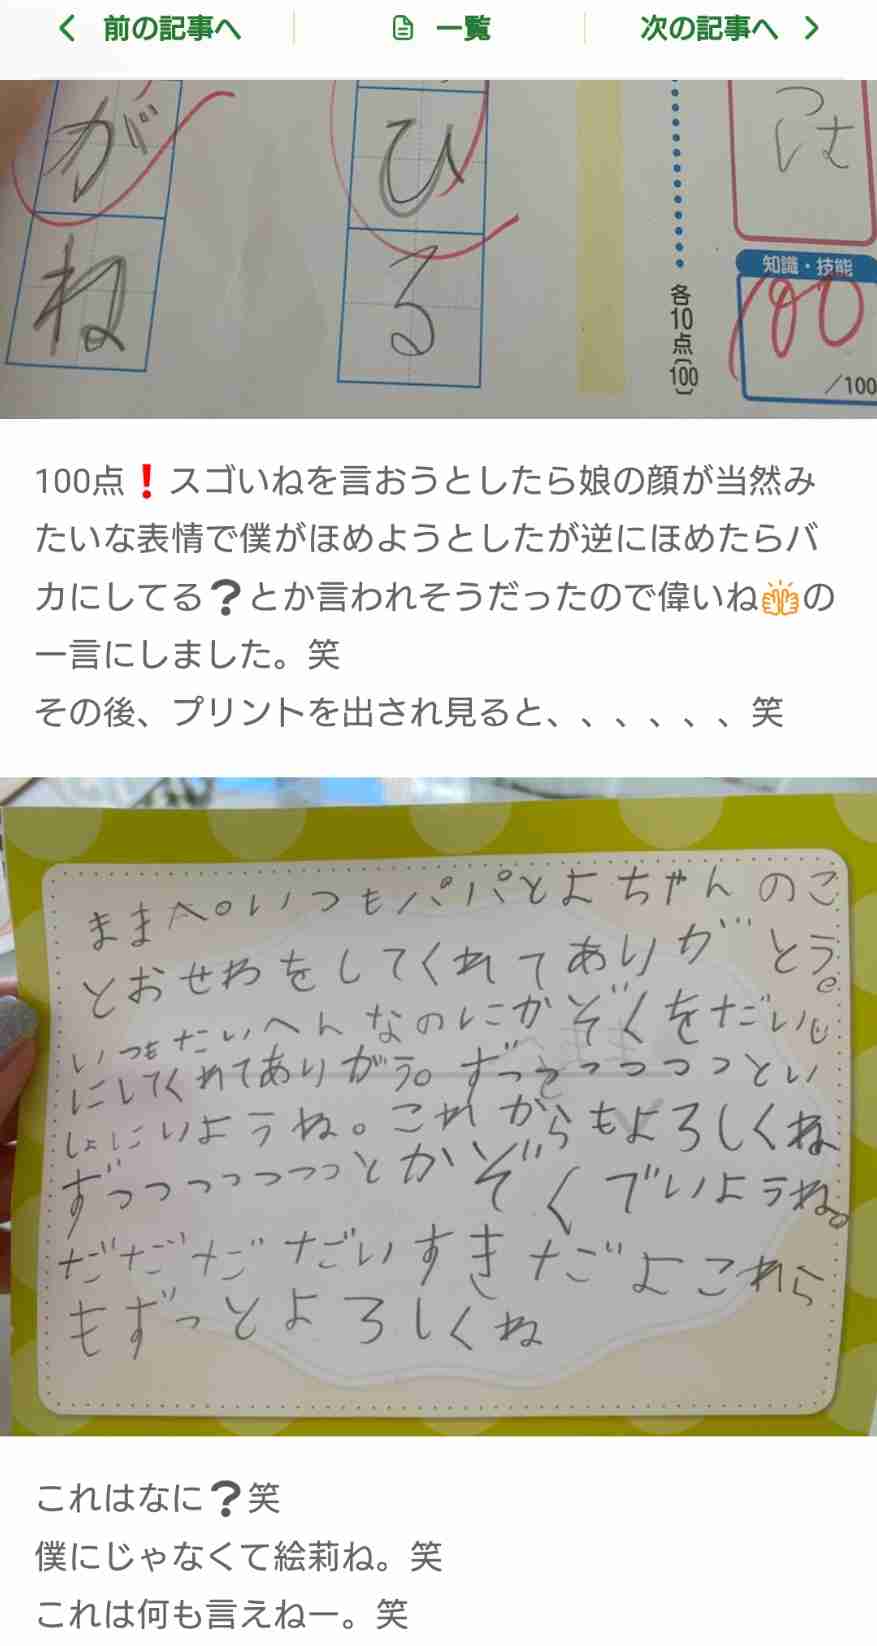 前の記事へ 一覧 次の記事へ
がね
ひる
各10点(100)
知識・技能
100
/100
100点❗スゴいねを言おうとしたら娘の顔が当然み
たいな表情で僕がほめようとしたが逆にほめたらバ
カにしてる❓とか言われそうだったので偉いね👏の
一言にしました。笑
その後、プリントを出され見ると、、、、、、笑
ままへ。いつもパパとよちゃんのこ
とおせわをしてくれてありがとう。
いつもたいへんなのにかぞくをだいじ
にしてくれてありがう。ずっとっっっっとい
しょにいようね。これからもよろしくね
ずっっっっっっっとかぞくでいようね。
だだだだいすきだよこれら
もずっとよろしくね
これはなに❓笑
僕にじゃなくて絵莉ね。笑
これは何も言えねー。笑